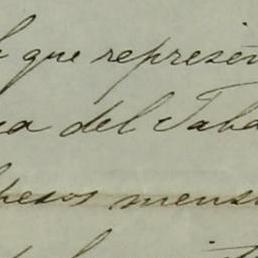 que represen
a del Taba
pesos mensu